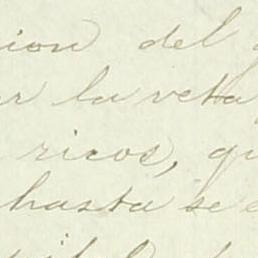 ion del
la veta
ricos, qu
hasta se